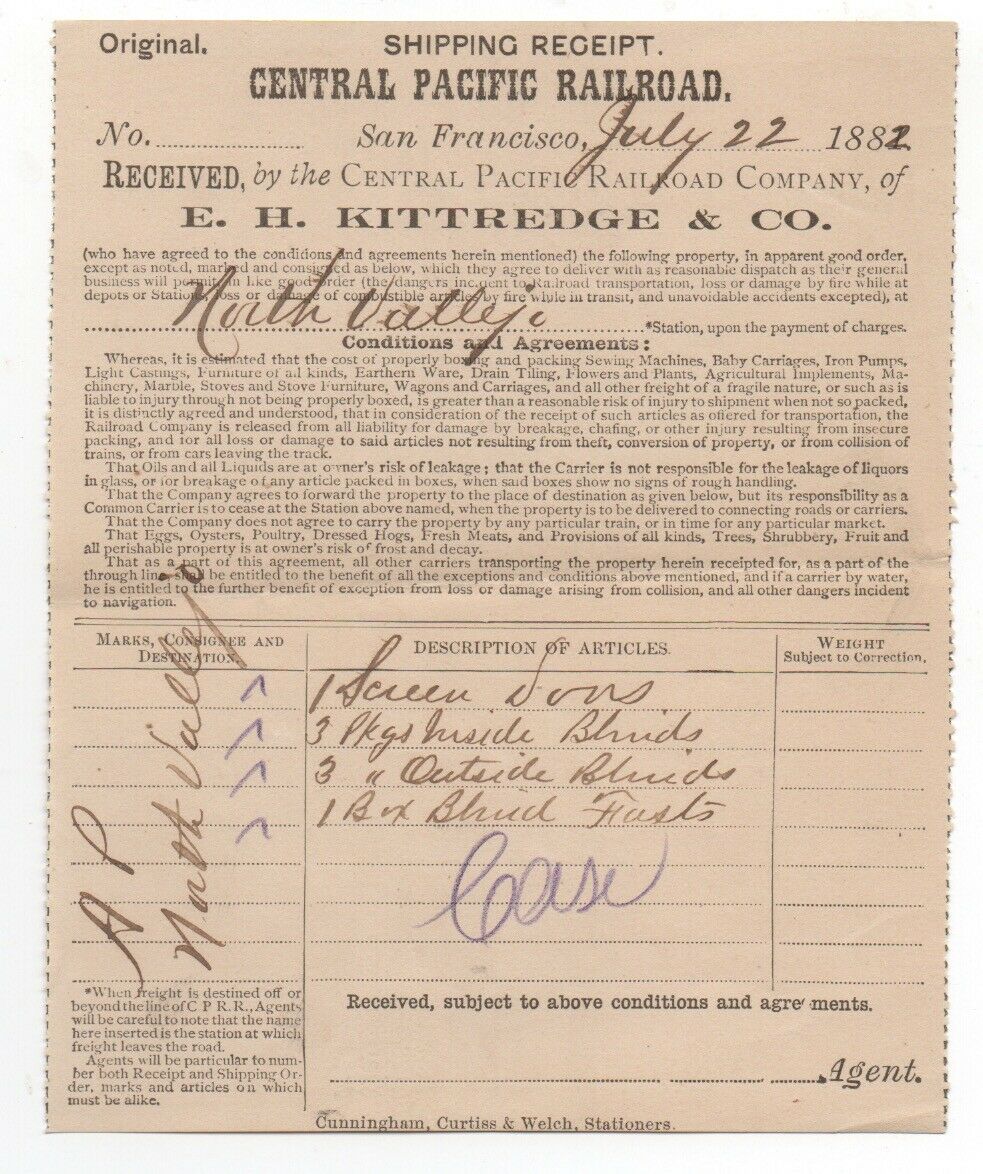 Original.
SHIPPING RECEIPT.
CENTRAL PACIFIC RAILROAD.
No. San Francisco, July 22 1882
RECEIVED, by the CENTRAL PACIFIC RAILROAD COMPANY, of
E. H. KITTREDGE & CO.
(who have agreed to the conditions and agreements herein mentioned) the following property, in apparent good order,
except as noted, marked and consigned as below, which they agree to deliver with as reasonable dispatch as their general
business will permit, in like good order (the dangers incident to Railroad transportation, loss or damage by fire while at
depots or Stations, loss or damage of combustible articles by fire while in transit, and unavoidable accidents excepted), at
North Vallejo *Station, upon the payment of charges.
Conditions and Agreements:
Whereas, it is estimated that the cost of properly boxing and packing Sewing Machines, Baby Carriages, Iron Pumps,
Light Castings, Furniture of all kinds, Earthern Ware, Drain Tiling, Flowers and Plants, Agricultural Implements, Ma-
chinery, Marble, Stoves and Stove Furniture, Wagons and Carriages, and all other freight of a fragile nature, or such as is
liable to injury through not being properly boxed, is greater than a reasonable risk of injury to shipment when not so packed,
it is distinctly agreed and understood, that in consideration of the receipt of such articles as offered for transportation, the
Railroad Company is released from all liability for damage by breakage, chafing, or other injury resulting from insecure
packing, and for all loss or damage to said articles not resulting from theft, conversion of property, or from collision of
trains, or from cars leaving the track.
That Oils and all Liquids are at owner's risk of leakage; that the Carrier is not responsible for the leakage of liquors
in glass, or for breakage of any article packed in boxes, when said boxes show no signs of rough handling.
That the Company agrees to forward the property to the place of destination as given below, but its responsibility as a
Common Carrier is to cease at the Station above named, when the property is to be delivered to connecting roads or carriers.
That the Company does not agree to carry the property by any particular train, or in time for any particular market.
That Eggs, Oysters, Poultry, Dressed Hogs, Fresh Meats, and Provisions of all kinds, Trees, Shrubbery, Fruit and
all perishable property is at owner's risk of frost and decay.
That as a part of this agreement, all other carriers transporting the property herein receipted for, as a part of the
through line shall be entitled to the benefit of all the exceptions and conditions above mentioned, and if a carrier by water,
he is entitled to the further benefit of exception from loss or damage arising from collision, and all other dangers incident
to navigation.
MARKS, CONSIGNEE AND
DESTINATION.
DESCRIPTION OF ARTICLES.
WEIGHT
Subject to Correction.
A P
North Vallejo
1 Screen Doors
3 Pkgs Inside Blinds
3 " Outside Blinds
1 Box Blind Fasts
Case
*When freight is destined off or
beyond the line of C P R. R., Agents
will be careful to note that the name
here inserted is the station at which
freight leaves the road.
Agents will be particular to num-
ber both Receipt and Shipping Or-
der, marks and articles on which
must be alike.
Received, subject to above conditions and agreements.
Agent.
Cunningham, Curtiss & Welch, Stationers.